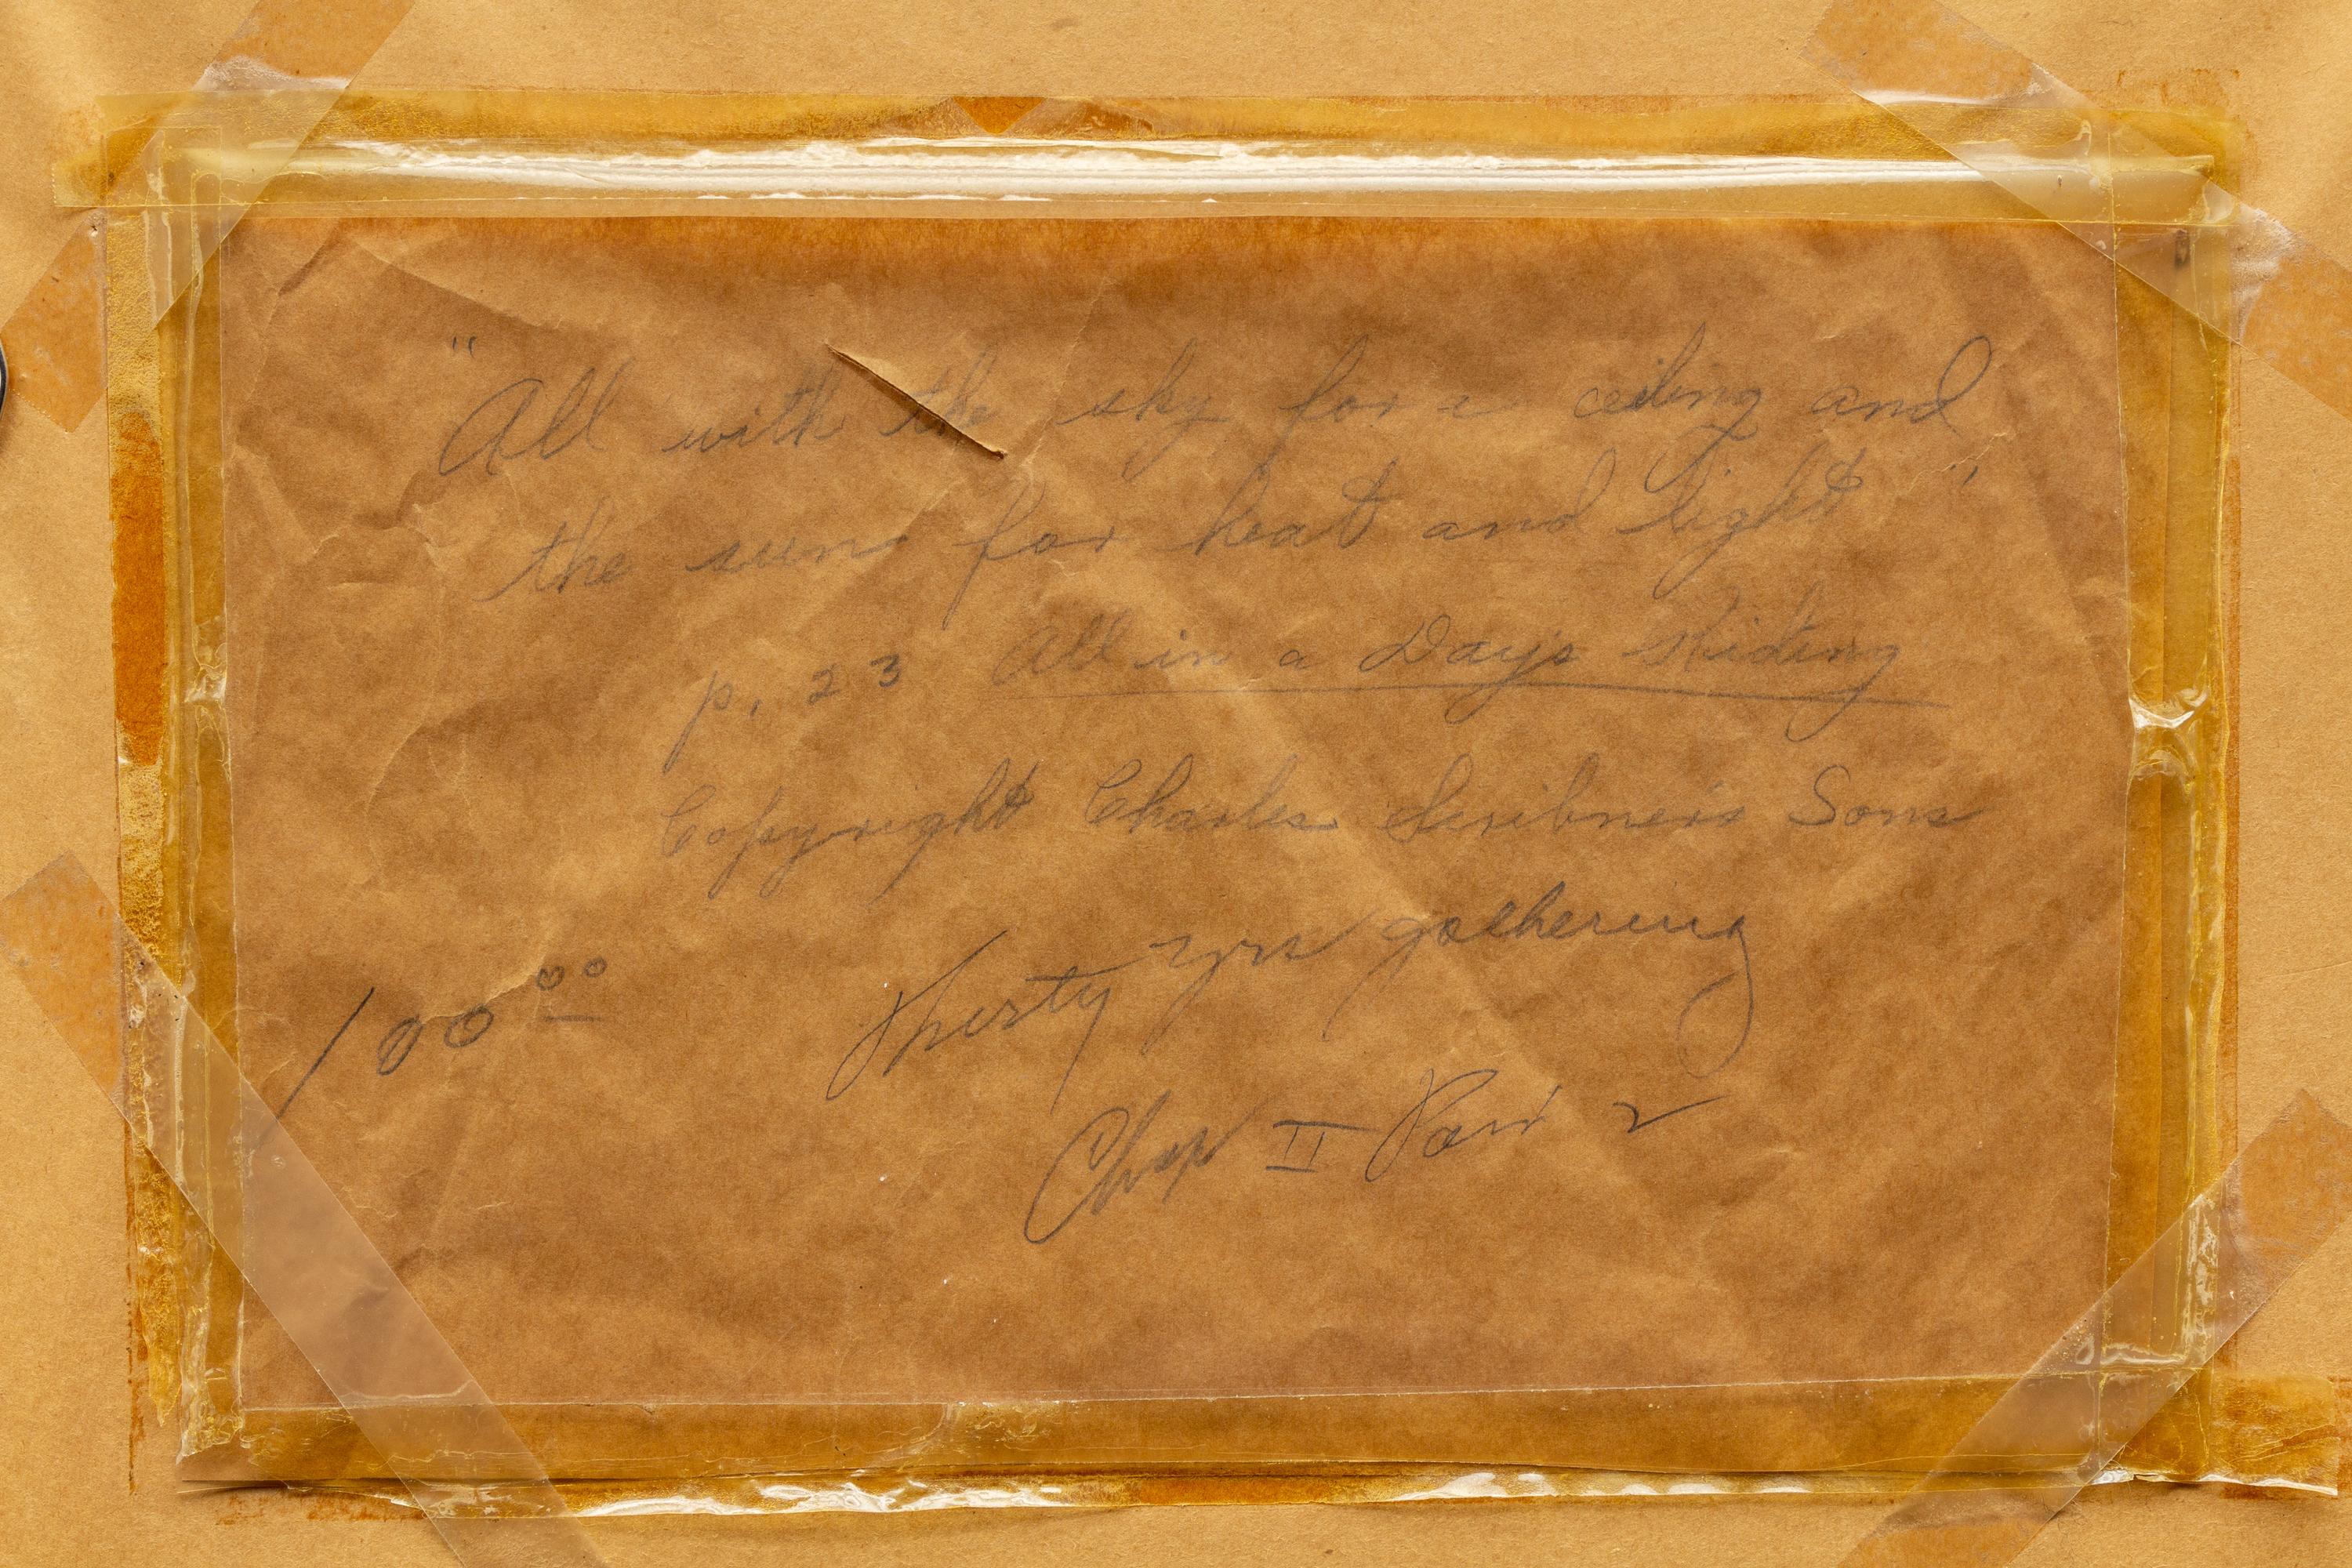 "All with the sky for a ceiling and
the sun for heat and light"
p. 23 All in a Days Riding
Copyright Charles Scribner's Sons
Thirty yrs gathering
100 00
Chap II 2